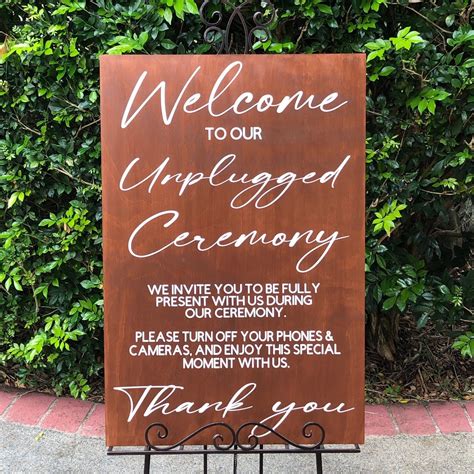 Welcome
TO OUR
Unplugged
Ceremony
WE INVITE YOU TO BE FULLY
PRESENT WITH US DURING
OUR CEREMONY.
PLEASE TURN OFF YOUR PHONES &
CAMERAS, AND ENJOY THIS SPECIAL
MOMENT WITH US.
Thank you